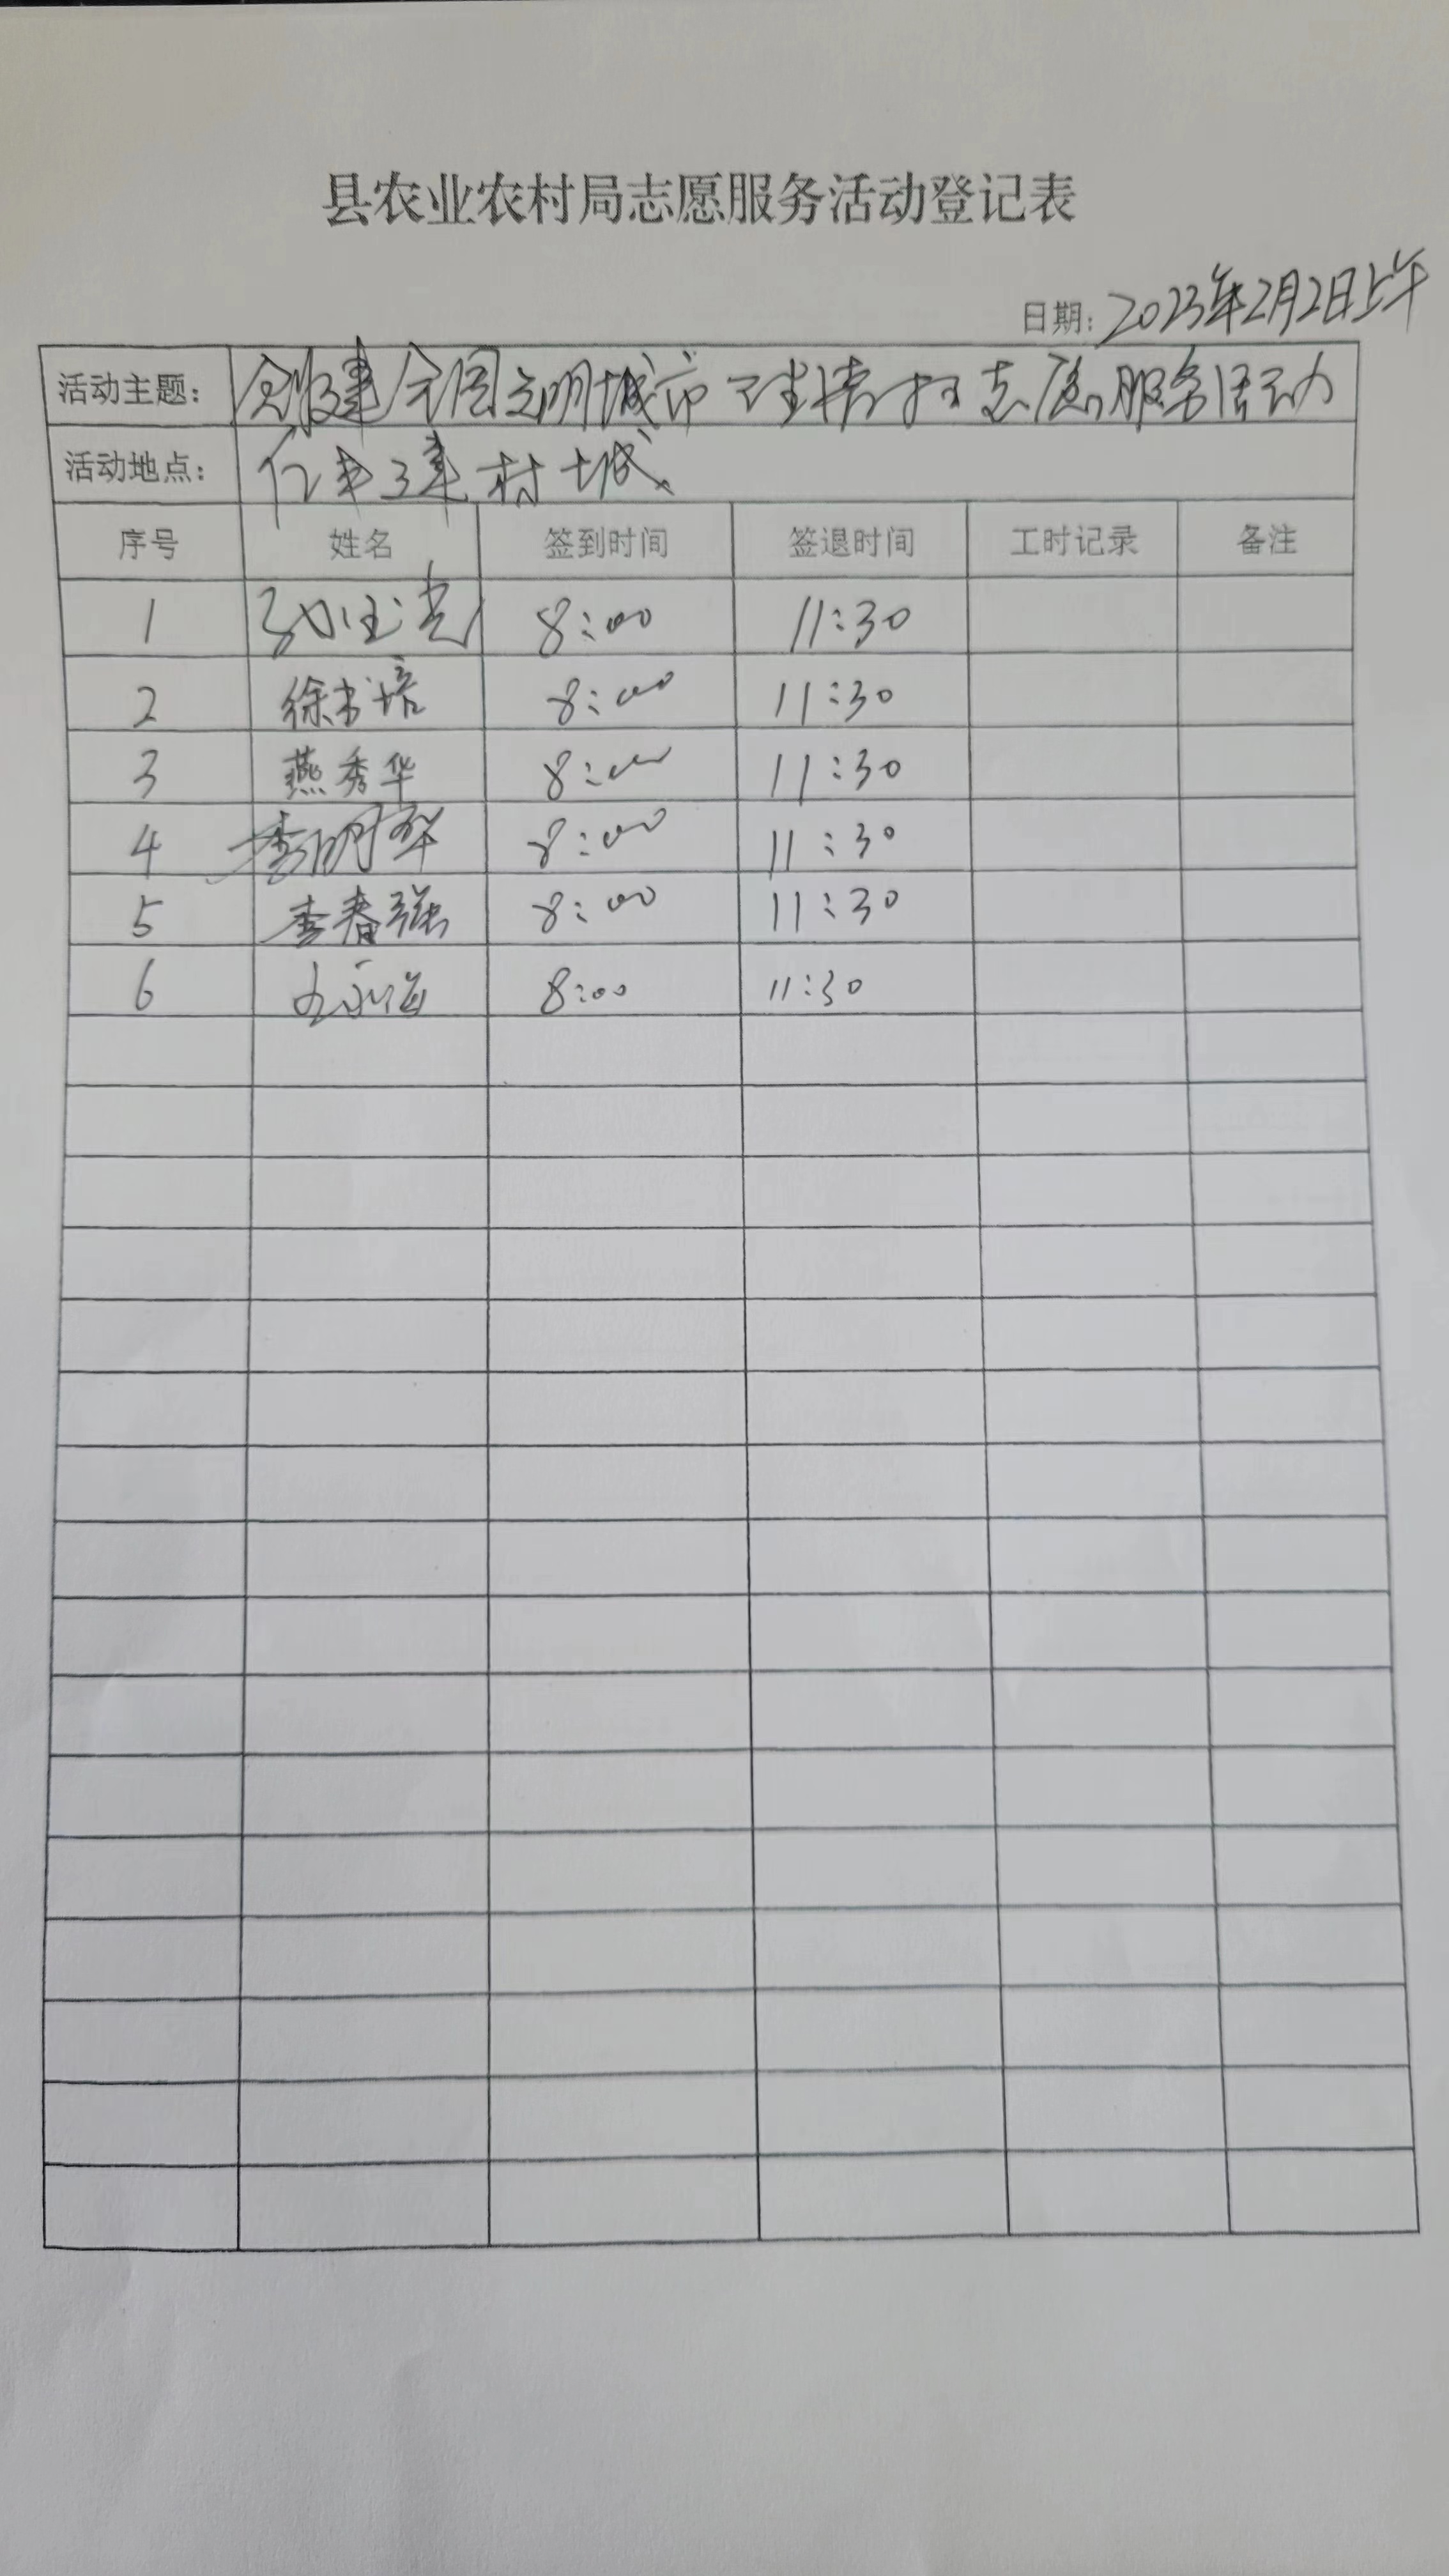 县农业农村局志愿服务活动登记表
日期: 2023年2月2日上午
活动主题: 创建全国文明城市卫生清扫志愿服务活动
活动地点: 村
序号 姓名 签到时间 签退时间 工时记录 备注
1 8:00 11:30
2 徐书培 8:00 11:30
3 燕秀华 8:00 11:30
4 李明军 8:00 11:30
5 李春强 8:00 11:30
6 8:00 11:30